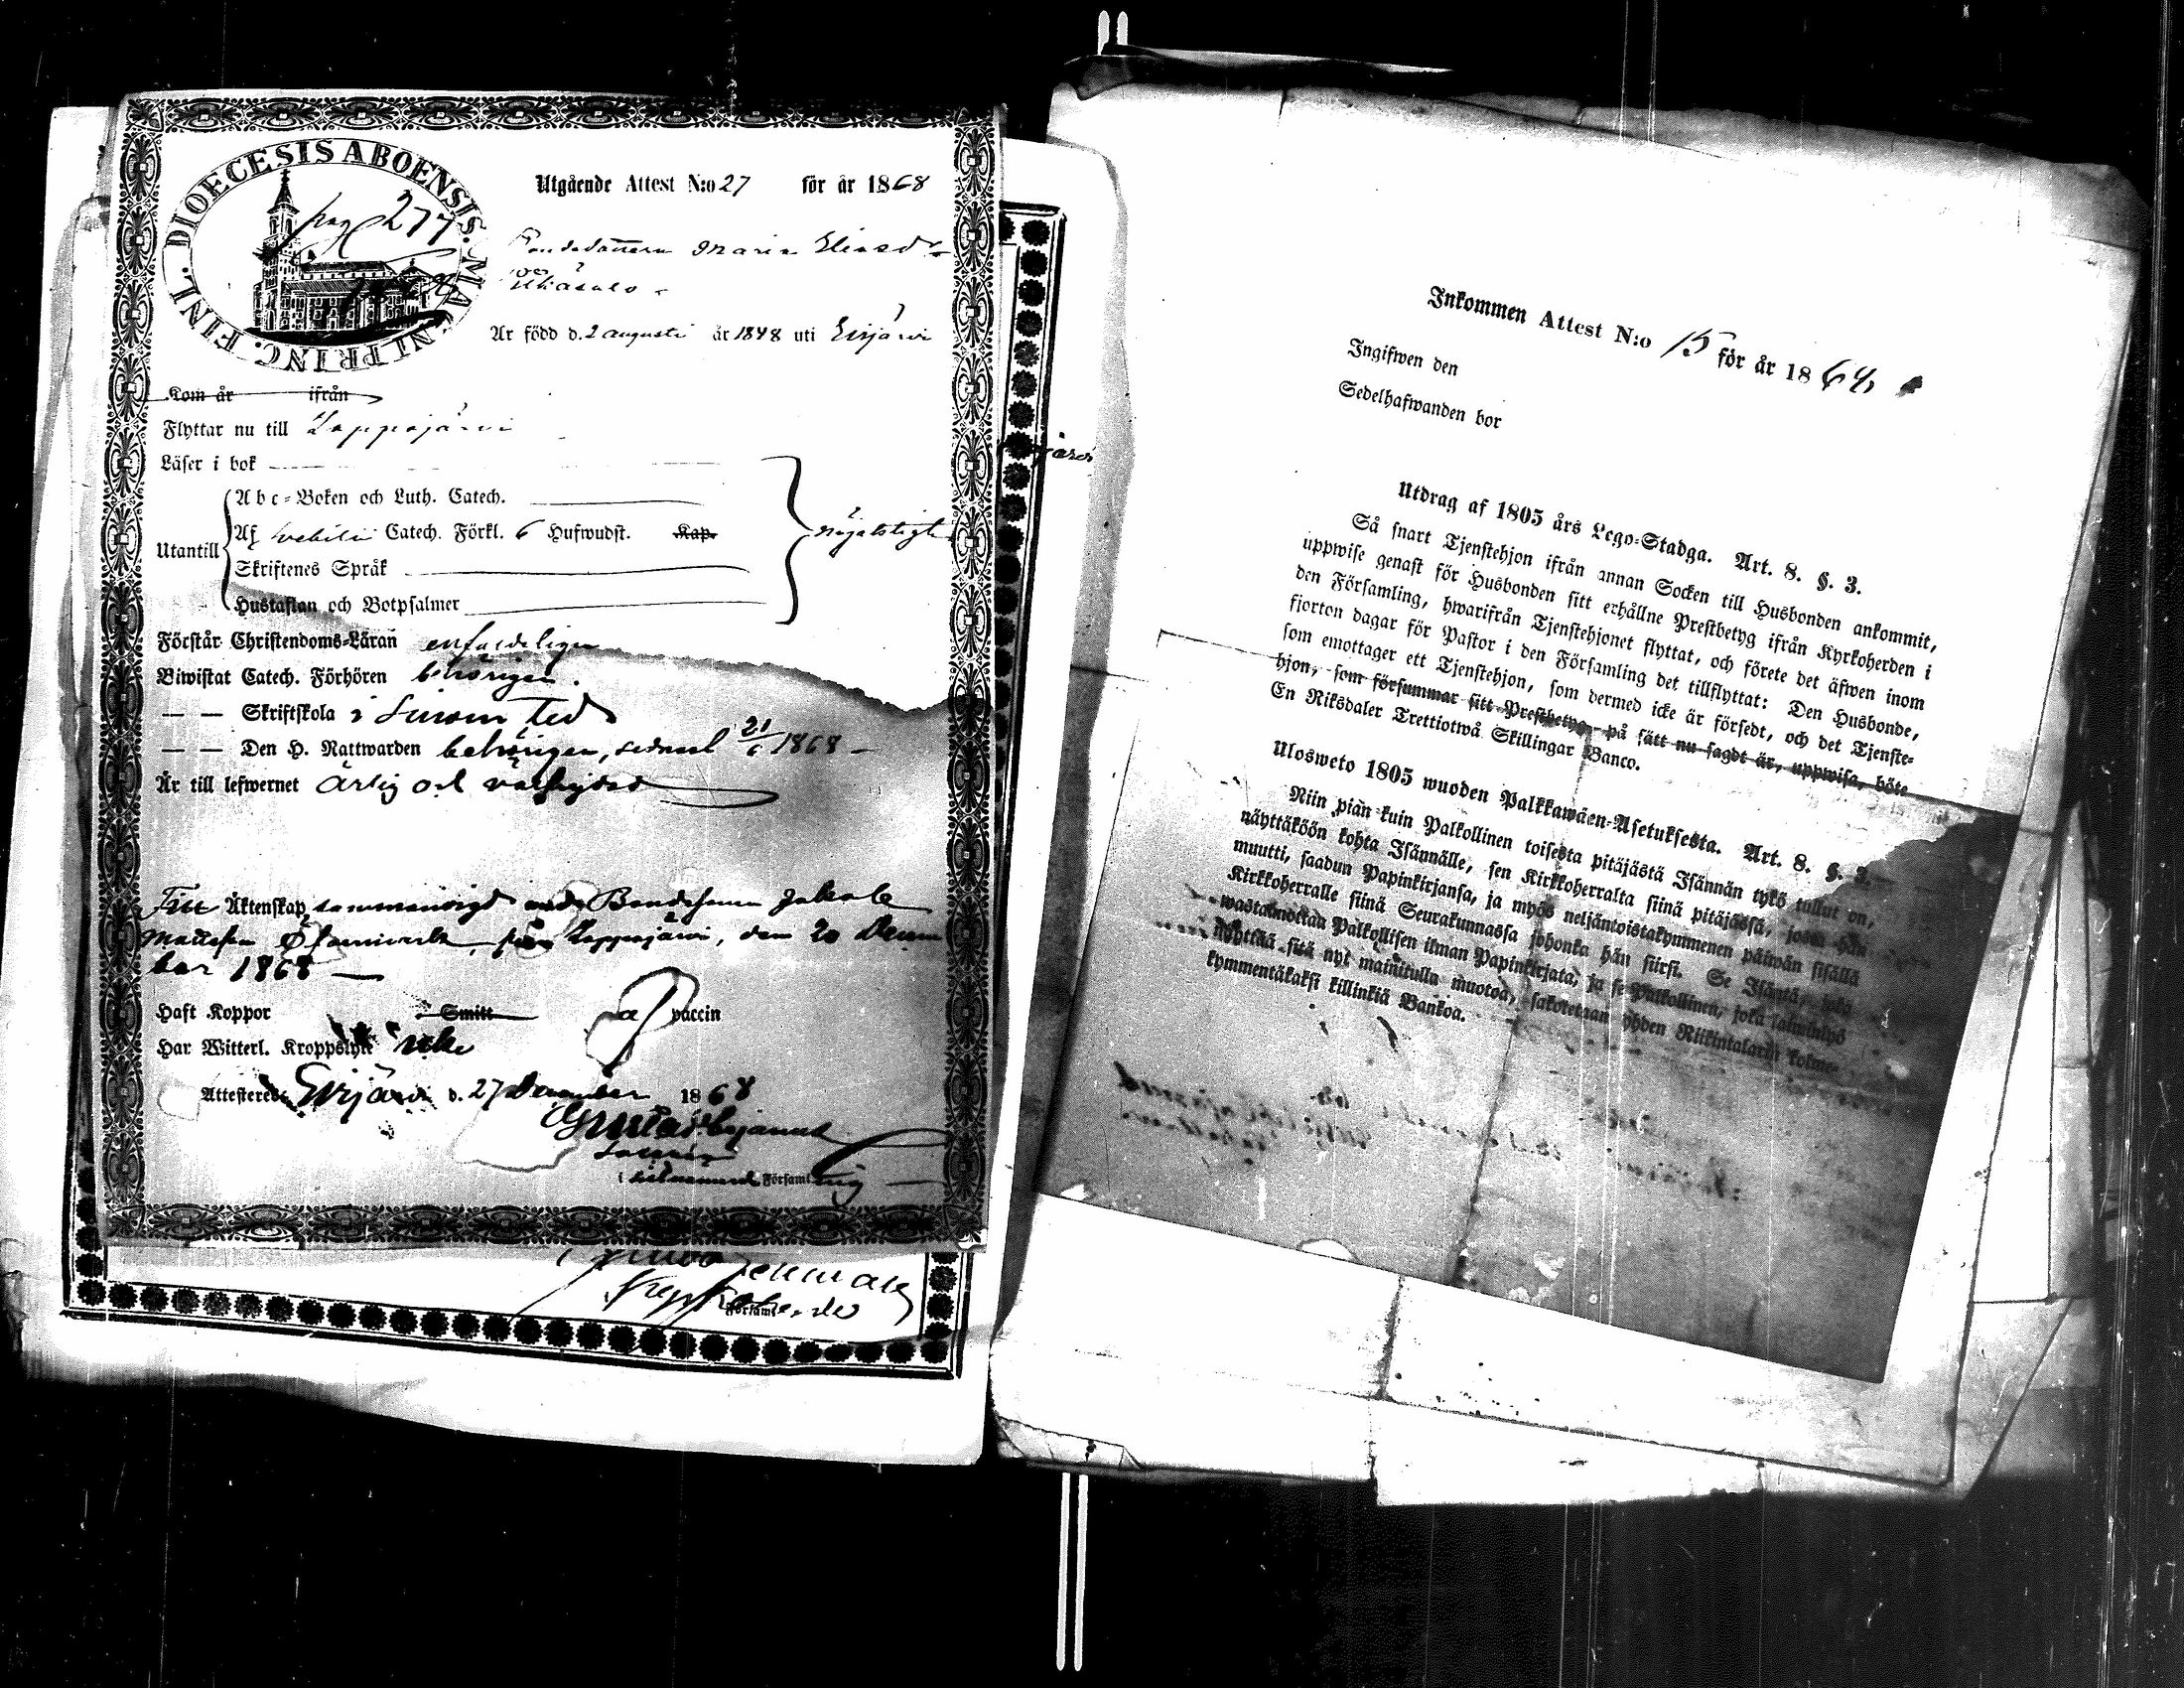 DIOECESIS ABOENSIS. MAGNI PRINC. FINL.
pag 277
Utgående Attest N:o 27 för år 1868
Bondedottern Maria Eliasdr
Är född d. 2 augusti år 1848 uti Evijärvi
Kom år ifrån
Flyttar nu till Lappajärvi
Läser i bok
Utantill
Abc-Boken och Luth. Catech.
Af Svebilii Catech. Förkl. 6 Hufwudst. Kap.
Skriftenes Språk
Hustaflan och Botpsalmer
nöjaktigt
Förstår Christendoms-Läran enfaldeligen
Biwistat Catech. Förhören behörigen.
— — Skriftskola i sinom tid
— — Den H. Nattwarden behörigen, sednast 21/6 1868 —
Är till lefwernet ärlig och välfrejdad
Till Äktenskap sammanvigd med Bondesonen Jakob
Mattsson från Lappajärvi, den 20 Decem
ber 1868 —
Haft Koppor Smitt vaccin
Har Witterl. Kroppslyte icke
Attesterar Evijärvi d. 27 December 1868
Gustaf
Församling
Församl
Inkommen Attest N:o 15 för år 1864
Ingifwen den
Sedelhafwanden bor
Utdrag af 1805 års Lego-Stadga. Art. 8. §. 3.
Så snart Tjenstehjon ifrån annan Socken till Husbonden ankommit,
uppwise genast för Husbonden sitt erhållne Prestbetyg ifrån Kyrkoherden i
den Församling, hwarifrån Tjenstehjonet flyttat, och förete det äfwen inom
fjorton dagar för Pastor i den Församling det tillflyttat: Den Husbonde,
som emottager ett Tjenstehjon, som dermed icke är försedt, och det Tjenste-
hjon, som försummar sitt Prestbetyg, på sätt nu sagdt är, uppwisa, böte
En Riksdaler Trettiotwå Skillingar Banco.
Ulosweto 1805 wuoden Palkkawäen-Asetuksesta. Art. 8. §. 3.
Niin pian kuin Palkollinen toisesta pitäjästä Isännän tykö tullut on,
näyttäköön kohta Isännälle, sen Kirkkoherralta siinä pitäjässä, josta hän
muutti, saadun Papinkirjansa, ja myös neljäntoistakymmenen päiwän sisällä
Kirkkoherralle siinä Seurakunnassa johonka hän siirsi. Se Isäntä, joka
wastaanottaa Palkollisen ilman Papinkirjata, ja se Palkollinen, joka laiminlyö
näyttää sitä nyt mainitulla muotoa, sakotetaan yhden Riikintalarin kolme-
kymmentäkaksi killinkiä Bankoa.